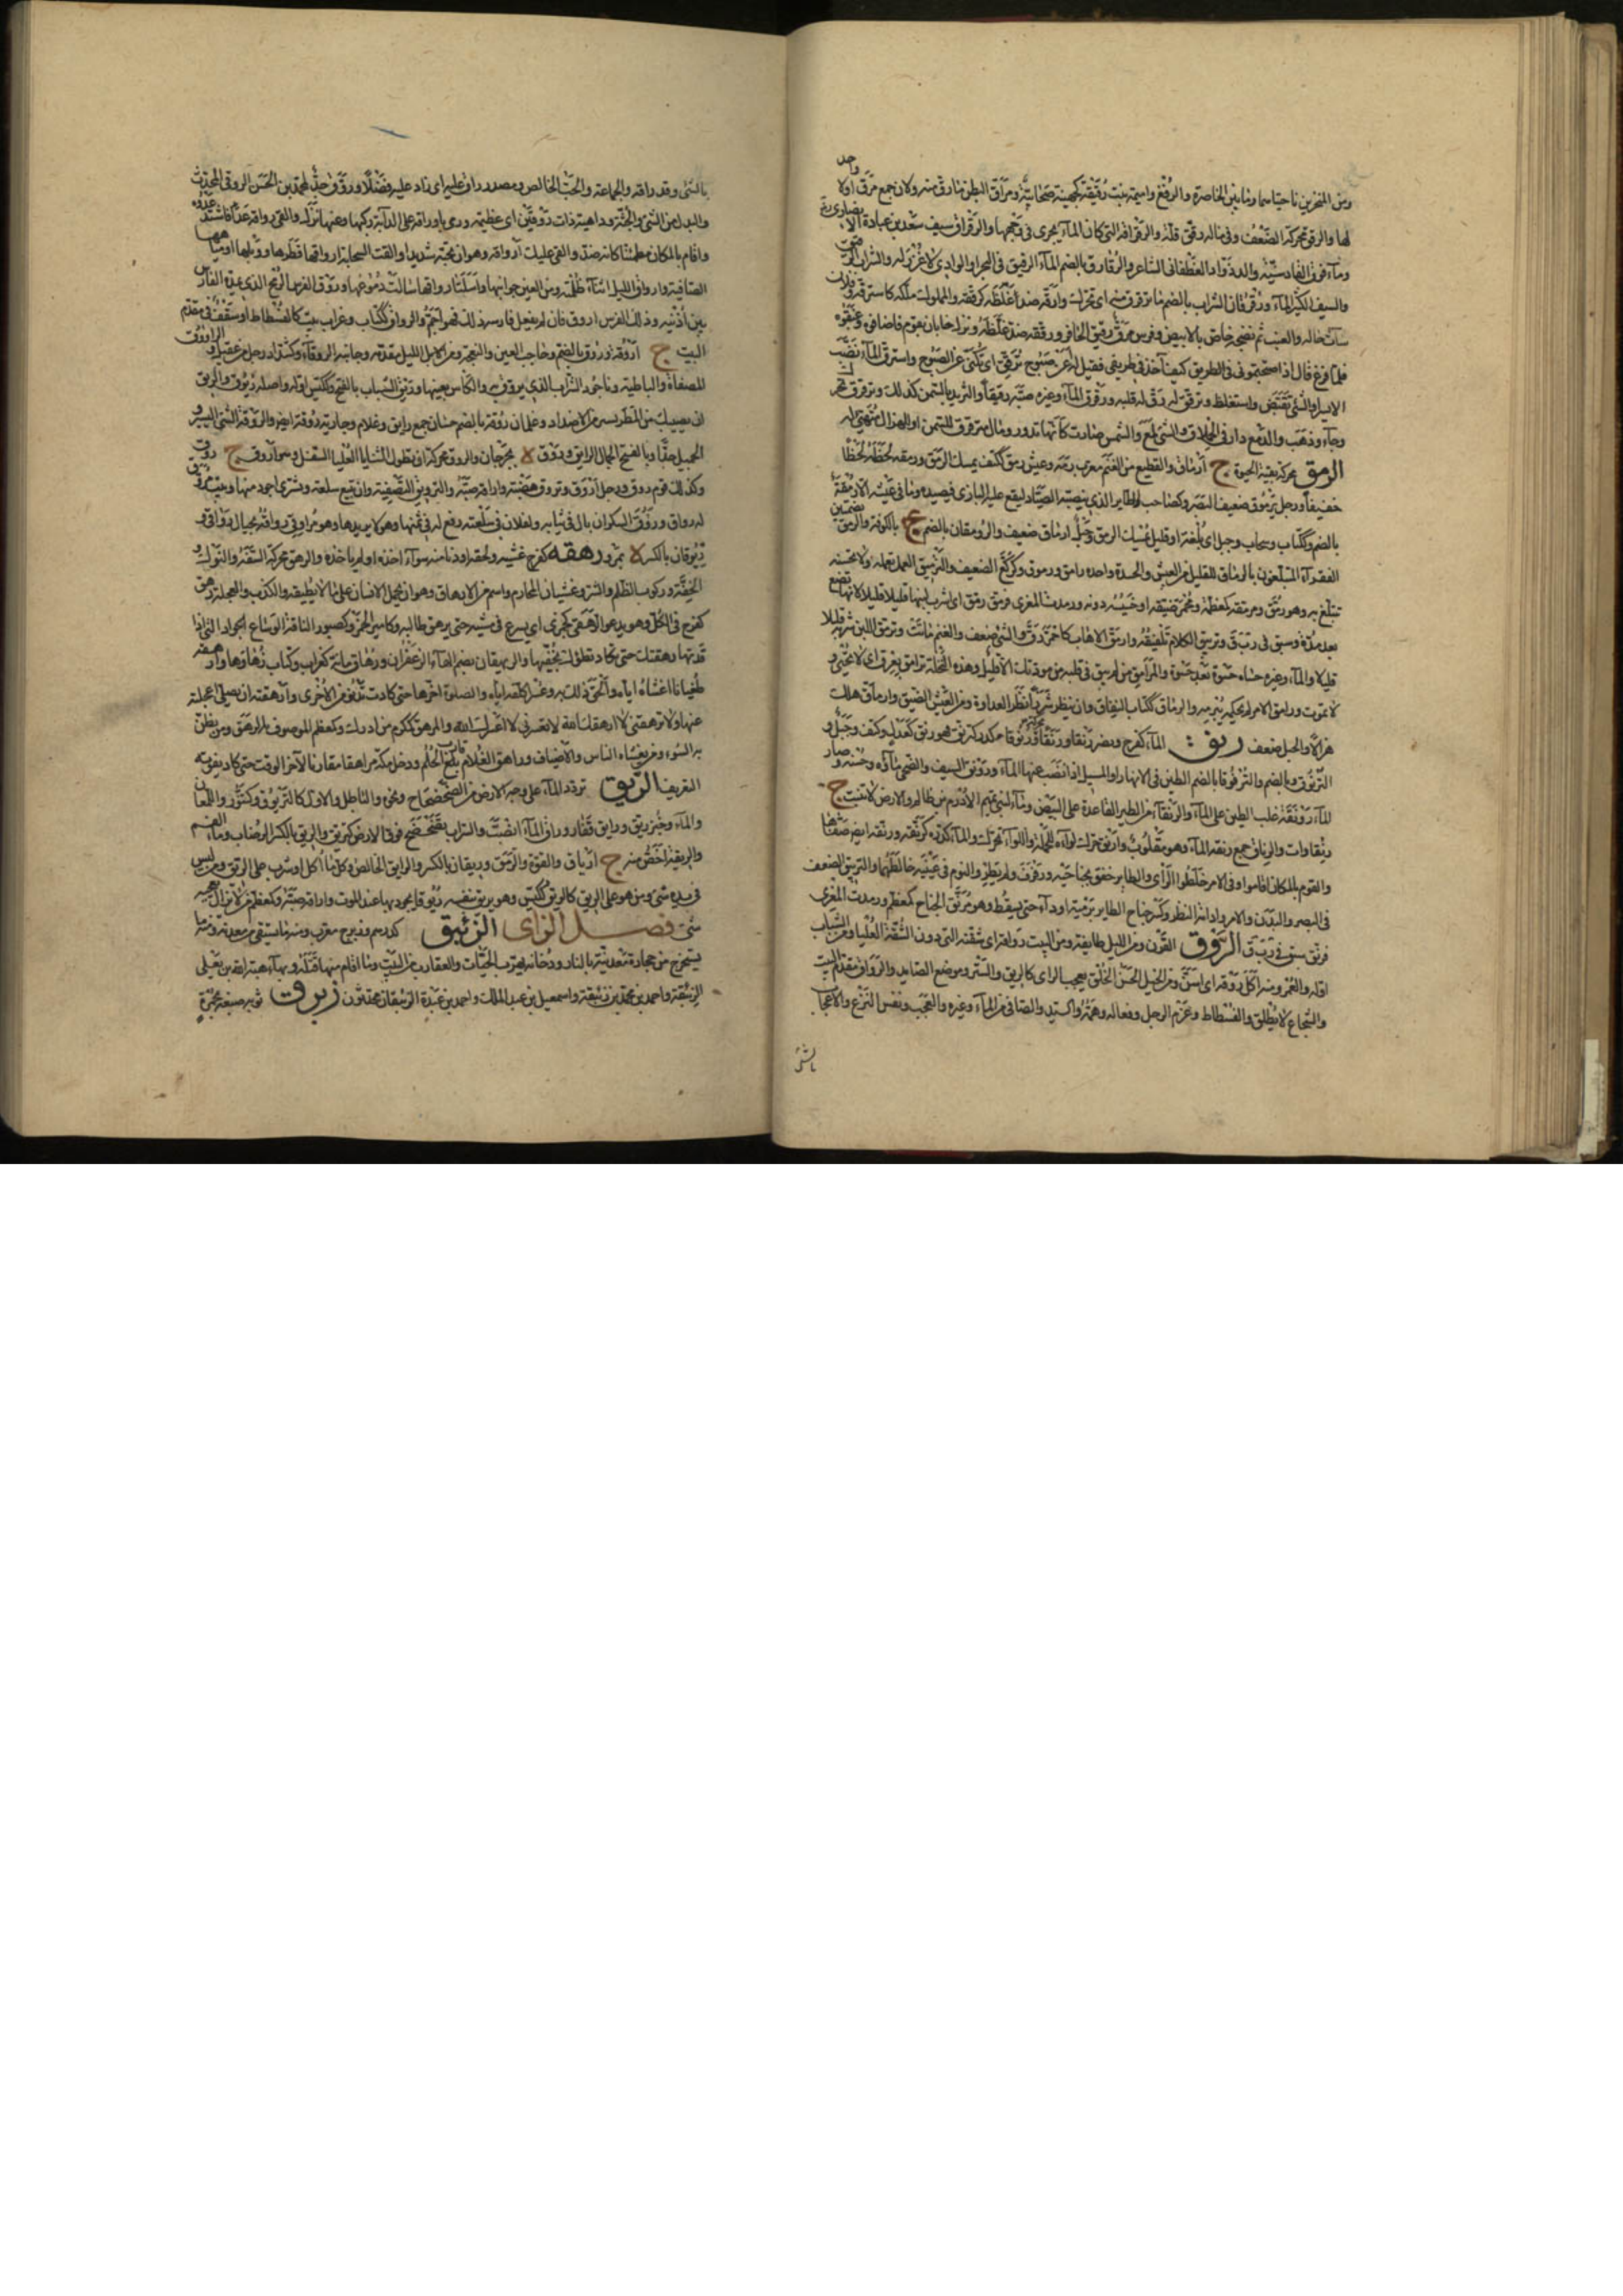 ومن المنخرين ناحيتاهما وما بين الخاصرة والرفغ واسيمة بنت رقيقة كجهينة صحابية ومراق البطن مارق منه ولان جمع مرق اولا واحد
لها والرقق محركة الضعف وفي ماله رقق قلة والرقراقة التي كان الماء يجرى في وجهها والرقراق سيف سعد بن عبادة الانصارى رضه
وماء فوق القادسية والد ذواد الغطفاني الشاعر والرقارق بالضم الماء الرقيق في البحر او الوادي لا غزر له والشراب الرقيق
والسيف الكثير الماء ورقرقان السراب بالضم ما ترقرق منه اى تحرك وارقه ضد اغلظه كرققه والمملوك ملكه كاسترقه وفلان
سات حاله والعنب تم نضجه خاص بالابيض وفرس مرق رقيق الحافر ورققه ضد غلظه ونزل جابان بقوم فاضافوه وغبقوه
فلما فرغ قال اذا صبحتموني في الطريق كيف آخذ في طريقي فقيل له اعن صبوح ترقق اى تكنى عن الصبوح واسترق الماء نضب
الا يسيرا والشئ نقيض واستغلظ وترقق له رق له قلبه ورقرق الماء وغيره صبه رقيقا والثريد بالسمن كذلك وترقرق تحرك
وجاء وذهب والدمع دار في الحملاق والشئ لمع والشمس صارت كانها تدور ومال مترقرق للسمن او الهزال متهئ له
الرمق محركة بقية الحيوة ج ارماق والقطيع من الغنم معرب رمه وعيش رمق ككتف يمسك الرمق ورمقه لحظه لحظا
خفيفا ورجل يرموق ضعيف البصر وكصاحب الطاير الذي ينصبه الصياد ليقع عليه البازى فيصيده وما في عيشه الا رمقة
بالضم وككتاب وسحاب وجبل اى بلغة او قليل يمسك الرمق وحبل ارماق ضعيف والرومقان بالضم ع بالكوفة والرمق بضمتين
الفقراء المتبلغون بالرماق للقليل من العيش والحسدة واحده رامق ورموق وكركع الضعيف والترميق العمل يعمله ولا يحسنه
تبلغ به وهو مرمق ومرمقه كمعظمة ومحمر ضيقه او خسيسه دونه ورمدت المعزى فرمق رمق اى اشرب لبنها قليلا قليلا لانها تضع
بعد مدة وسبق في ربق وترميق الكلام تلفيقه وارمق الاهاب كاحمر رق والشئ ضعف والغنم ماتت وترمق اللبن شربه قليلا
قليلا والماء وغيره حساه حسوة بعد حسوة والمرامق من لم يبق في قلبه من مودتك الا قليل وهذه النخلة ترامق بعرق اى لا تحيى و
لا تموت ورامق الامر لم يحكمه يبرمه والرماق ككتاب النفاق وان ينظر شزرا نظر العداوة ومن العيش الضيق وارماق هلك
هزالا والحبل ضعف رنق الماء كفرح ونصر رنقا ورنقا ورنوقا كدر كترنق فهو رنق كعدل وكتف وجبل و
الترنوق وبالضم والترنوقا بالضم الطين في الانهار او المسيل اذا نضب عنها الماء ورونق السيف والضحى ماؤه وحسنه وصار
الماء رونقة غلب الطين على الماء والرنقاء من الطير القاعدة على البيض وماء لبني تيم الادرم بن ظالم والارض لا تنبت ج
رنقاوات والرنق جمع رنقة الماء وهو مقلوب وارنق حرك لواءه للحملة واللواء تحرك والماء كدره كرنقه ورنقه ايضا صفاه
والقوم بالمكان اقاموا وفي الامر خلطوا الراى والطاير خفق بجناحيه ورفرف ولم يطر والنوم في عينيه خالطهما والترنيق الضعف
في البصر والبدن والامر وادامة النظر وكسر جناح الطاير برمية او داء حتى يسقط وهو مرنق الجناح كمعظم ورمدت المعزى
فرنق سبق في ربق الروق القرن ومن الليل طايفة ومن البيت رواقه اى شقته التى دون الشقة العليا ومن الشباب
اوله والعمر ومنه اكل روقه اى اسن ومن الخيل الحسن الخلق يعجب الراى كالريق والستر وموضع الصايد والرواق مقدم البيت
والشجاع لا يطلق والفسطاط وعزم الرجل وفعاله وهمته والسيد والصافي من الماء وغيره والعجب ونفس النزع والاعجاب
بالشئ
بالشئ وقد راقه والجماعة والحب الخالص ومصدر راق عليه اى زاد عليه فضلا وروق جد لمحمد بن الحسن الروقي المحدث
والبدل من الشئ والجثة وداهية ذات روقين اى عظيمة ورمى باوراقه على الدابة ركبها وعنها نزل والقى رواقه عدا فاشتد عدوه
واقام بالمكان مطمئنا كانه ضد والقى عليك ارواقه وهو ان تحبه شديدا والقت السحابة ارواقها قطرها ووبلها او مياهها
الصافية وارواق الليل اثناء ظلمته ومن العين جوانبها واسبلت ارواقها سالت دموعها وروق الفرس الرمح الذي يمده الفارس
بين اذنيه وذلك الفرس اروق فان لم يفعل فارسه ذلك فهو اجم والرواق ككتاب وغراب بيت كالفسطاط او سقف في مقدم
البيت ج اروقة وروق بالضم وحاجب العين والنعجة ومن الليل مقدمه وجانبه الروقاء وككتاب رجل من عقيل والراووق
المصفاة والباطية وناجود الشراب الذي يروق به والكاس بعينها وريق الشباب بالفتح وككيس اوله واصله ريوق والريق
ان يصيبك من المطر يسير من الاضداد وغلمان روقة بالضم حسان جمع رايق وغلام وجارية روقة ايضا والروقة الشئ اليسير و
الجميل جدا وبالفتح الجمال الرايق وروق ة بجرجان والروق محركة ان تطول الثنايا العليا السفلى وهو اروق ج روق
وكذلك قوم روق ورجل اروق وتروق هضبة واراقه صبه والترويق التصفية وان تبيع سلعة وتشترى اجود منها وبيت مروق
له رواق وروق السكران بال في ثيابه ولفلان في سلعته رفع له في ثمنها وهو لا يريدها وهو مراوقى رواقه بحيال رواقى و
ريوقان بالكسر ة بمرو رهقه كفرح غشيه ولحقه او دنا منه سواء اخذه او لم ياخذه والرهق محركة السفه والنوك و
الخفة وركوب الظلم والشر وغشيان المحارم واسم من الارهاق وهو ان تحمل الانسان على ما لا يطيقه والكذب والعجلة رهق
كفرح في الكل وهو يعدو الرهقى كجمزى اى يسرع في مشيه حتى يرهق طالبه وكامير الخمر وكصبور الناقة الوساع الجواد التى اذا
قدتها رهقتك حتى تكاد تطؤك بخفيها والريهقان بضم الهاء الزعفران ورهاق مائة كغراب وكتاب زهاؤها وارهقه
طغيانا اغشاه اياه والحق ذلك به وعسرا كلفه اياه والصلوة اخرها حتى كادت تدنو من الاخرى وارهقته ان يصلي اعجلته
عنها ولا ترهقني لا ارهقك الله لا تعسرني لا اعسرك الله والمرهق كمكرم من ادرك وكمعظم الموصوف بالرهق ومن يظن
به السوء ومن يغشاه الناس والاضياف وراهق الغلام قارب بلغ الحلم ودخل مكة مراهقا مقاربا لآخر الوقت حتى كاد يفوته
التعريف الريق تردد الماء على وجه الارض من الضحضاح ونحوه والباطل والاول كالتريوق وكتنور واللمعان
والماء وخبز ريق ورايق قفار وراق الماء انصب والسراب تضحضح فوق الارض كتريق والريق بالكسر الرضاب وماء الفم
والريقة اخص منه ج ارياق والقوة والرمق وريقان بالكسر والرايق الخالص وكل ما اكل او شرب على الريق ومن ليس
في يده شئ ومن هو على الريق كالريق ككيس وهو يريق بنفسه ريوقا يجود بها عند الموت واراقه صبه وكمعظم من لا يزال يعجبه
شئ فصل الزاى الزئبق كدرهم وزبرج معرب ومنه ما يستقى من معدنه ومنه ما
يستخرج من حجارة معدنية بالنار ودخانه يهرب الحيات والعقارب من البيت وما اقام منها قتله وبهاء هبة الله بن علي
الزئبقة واحمد بن محمد بن زئبقة واسمعيل بن عبد الملك واحمد بن عبدة الزئبقيان محدثون زبرق ثوبه صبغه بحمرة